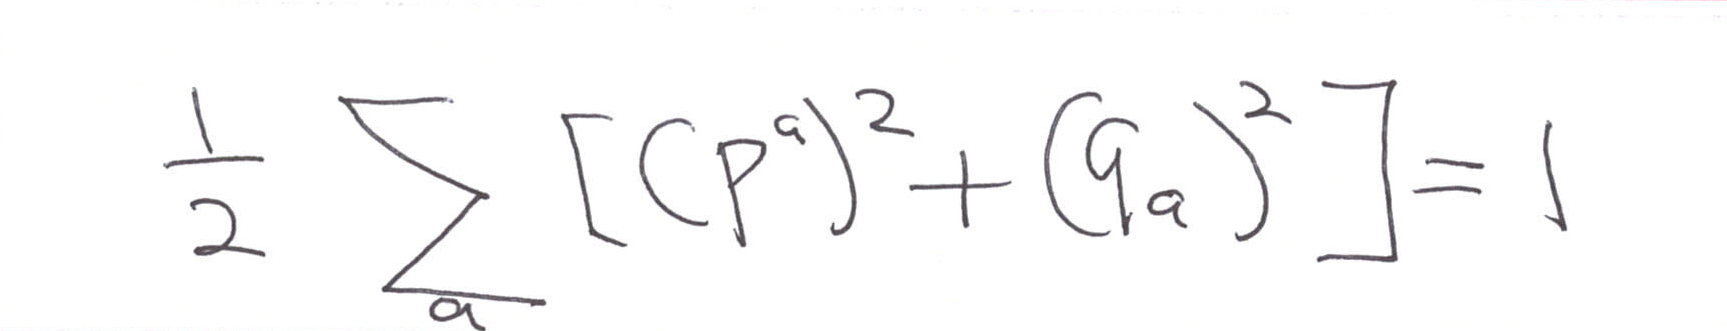 \frac{1}{2} \sum_{a} [(p^a)^2 + (q_a)^2] = 1